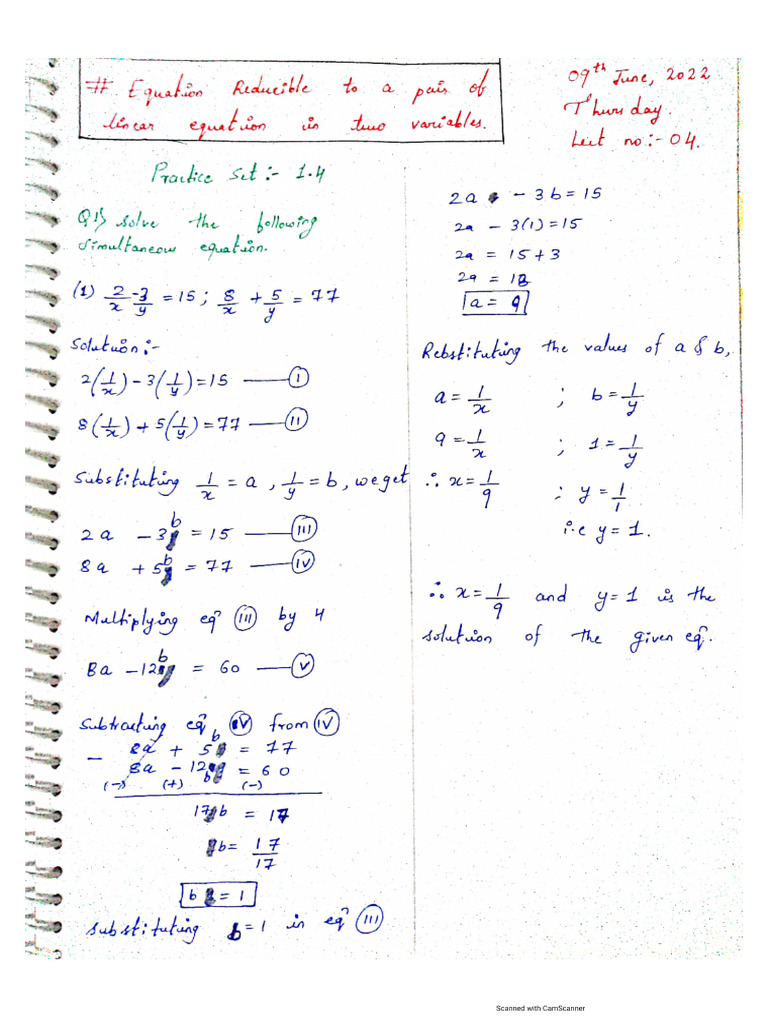 # Equation Reducible to a pair of
linear equation in two variables.
09th June, 2022
Thursday.
Lect no:- 04.
Practice Set:- 1.4
Q1) Solve the following
simultaneous equation.
(1) 2/x - 3/y = 15 ; 8/x + 5/y = 77
Solution:-
2(1/x) - 3(1/y) = 15 —— (I)
8(1/x) + 5(1/y) = 77 —— (II)
Substituting 1/x = a , 1/y = b , we get
2a - 3b = 15 —— (III)
8a + 5b = 77 —— (IV)
Multiplying eqn (III) by 4
8a - 12b = 60 —— (V)
Subtracting eqn (V) from (IV)
8a + 5b = 77
- 8a - 12b = 60
(-) (+) (-)
17b = 17
b = 17/17
b = 1
Substituting b = 1 in eqn (III)
2a - 3b = 15
2a - 3(1) = 15
2a = 15 + 3
2a = 18
a = 9
Rebstituting the values of a & b,
a = 1/x ; b = 1/y
9 = 1/x ; 1 = 1/y
∴ x = 1/9 ; y = 1/1
i.e y = 1.
∴ x = 1/9 and y = 1 is the
solution of the given eqn.
Scanned with CamScanner